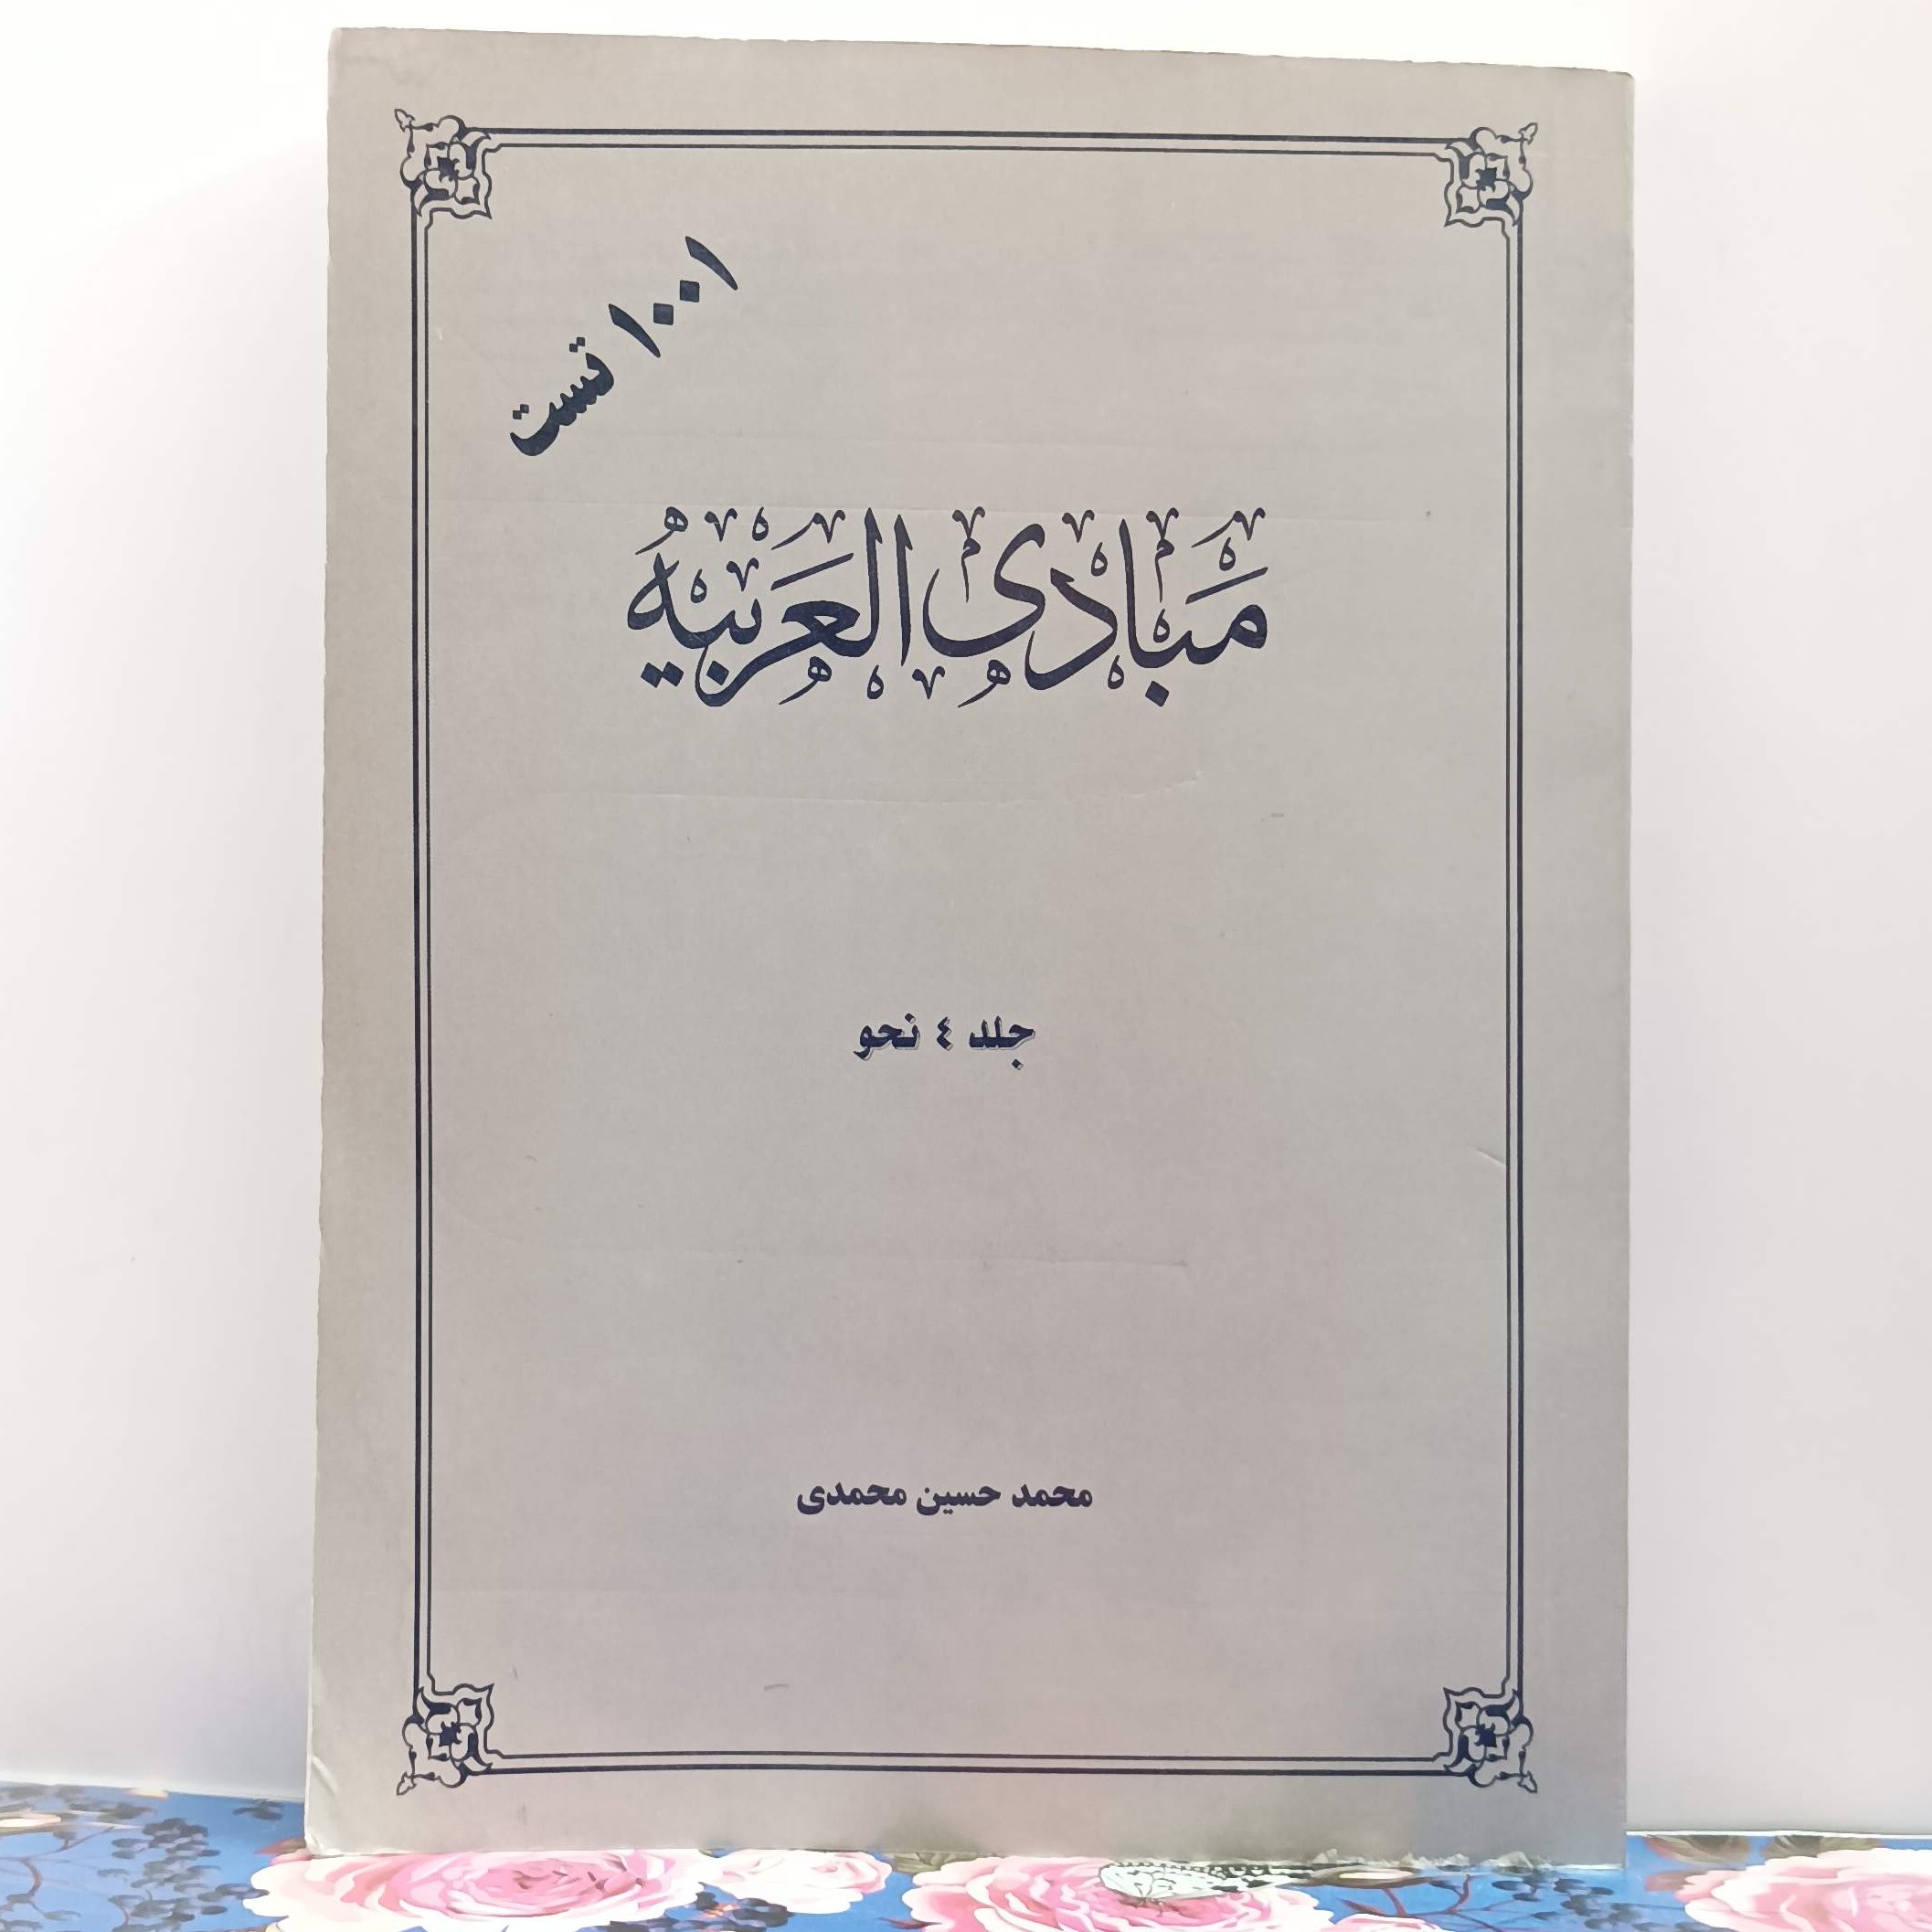 ۱۰۰۱ تست
مَبادی العَرَبیهُ
جلد ٤ نحو
محمد حسین محمدی